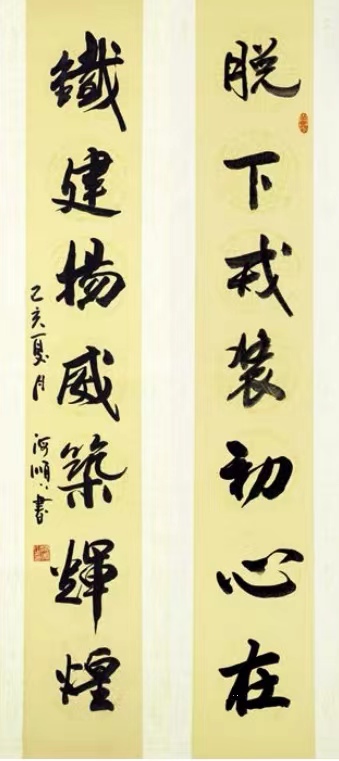 脱下戎装初心在
鐵建揚威築輝煌
己亥夏月
河順书